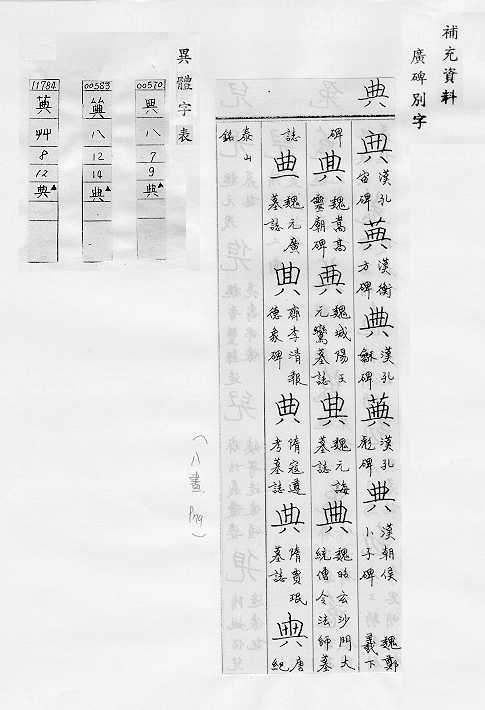 補充資料
廣碑別字
典
典 漢孔宙碑
典 漢衡方碑
典 漢孔龢碑
典 漢孔彪碑
典 漢朝侯小子碑
魏鄭羲下碑
典 魏嵩高靈廟碑
典 魏城陽王元鸞墓誌
典 魏元誨墓誌
典 魏昭玄沙門大統僧令法師墓誌
典 魏元廣墓誌
典 齊李清報德象碑
典 隋寇遵考墓誌
典 隋賈珉墓誌
典 唐紀泰山銘
異體字表
00570
八
7
9
典▲
00583
八
12
14
典▲
11784
艸
8
12
典▲
(八畫 P79)